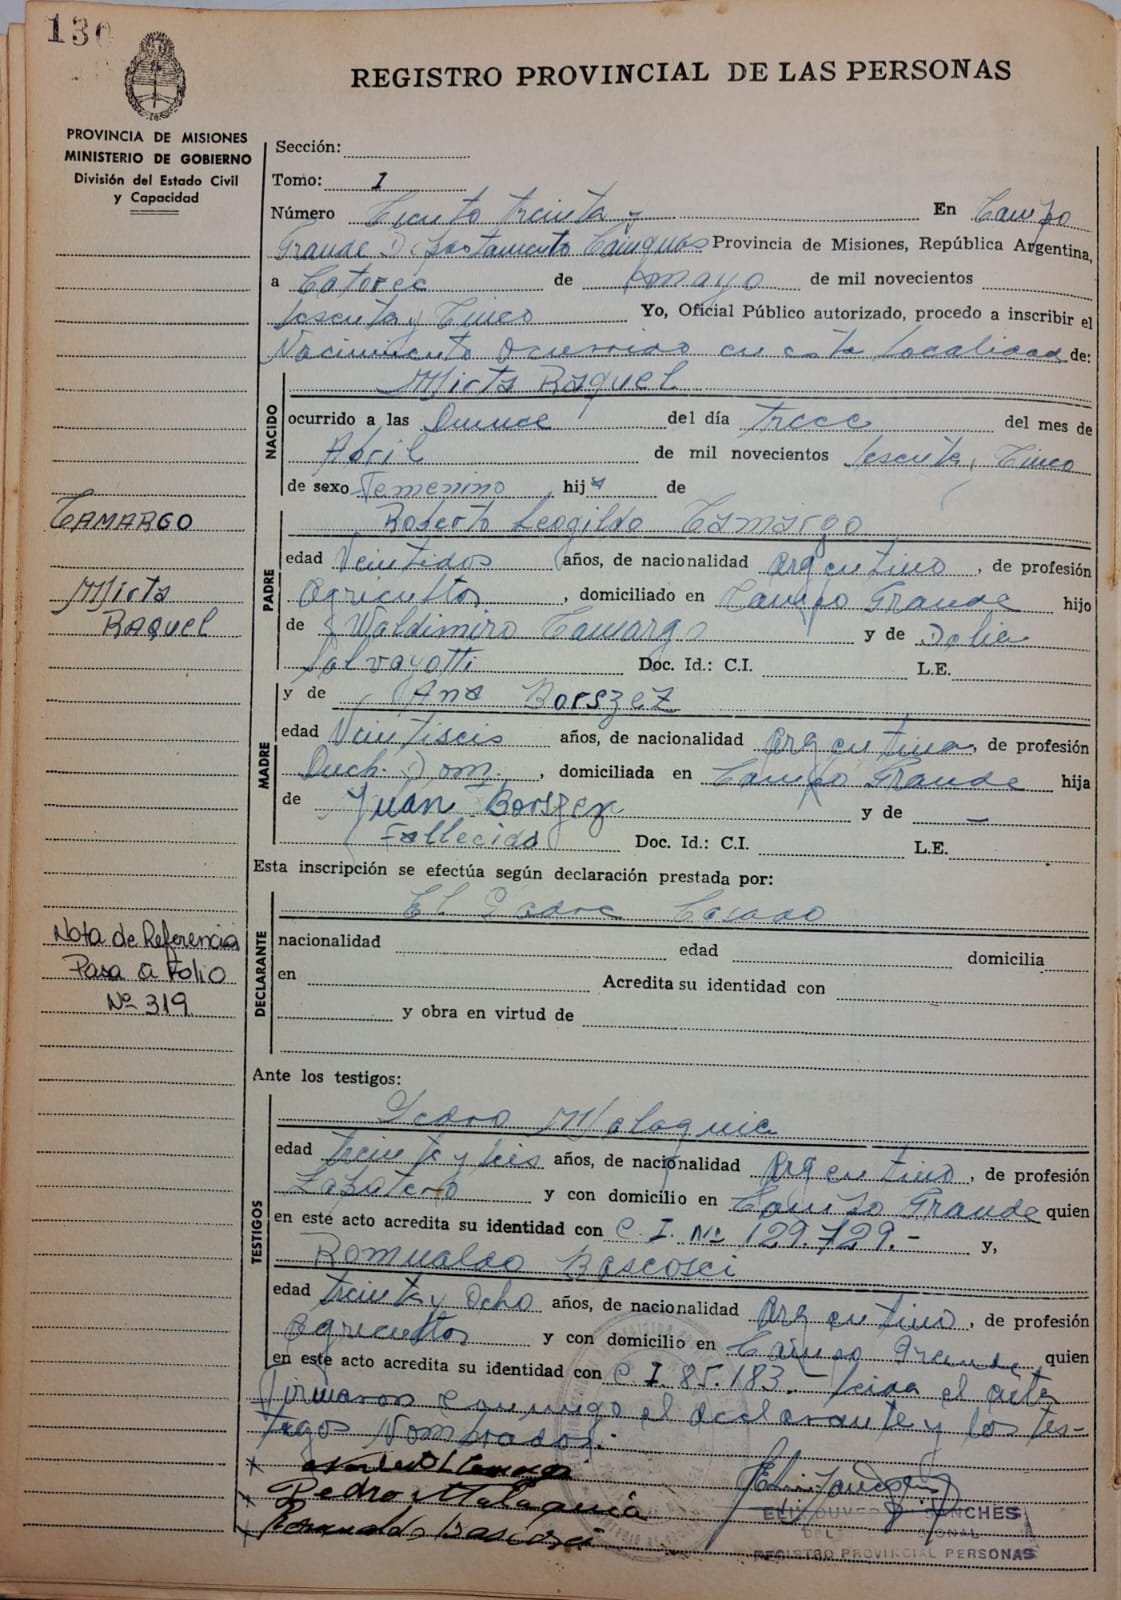 130
REGISTRO PROVINCIAL DE LAS PERSONAS
PROVINCIA DE MISIONES
MINISTERIO DE GOBIERNO
División del Estado Civil
y Capacidad
Sección:
Tomo: I
Número Ciento treinta y En Campo
Grande Departamento Cainguas Provincia de Misiones, República Argentina,
a Catorce de mayo de mil novecientos
sesenta y Cinco Yo, Oficial Público autorizado, procedo a inscribir el
Nacimiento Ocurrido en esta Localidad de:
NACIDO
Mirta Raquel
ocurrido a las Quince del día trece del mes de
Abril de mil novecientos sesenta y Cinco
de sexo Femenino hija de
CAMARGO
Mirta
RAQUEL
PADRE
Roberto Leogildo Camargo
edad Veintidos años, de nacionalidad Argentino, de profesión
Agricultor, domiciliado en Campo Grande hijo
de Waldimiro Camargo y de Dolia
Salvayotti Doc. Id.: C.I. L.E.
MADRE
y de Ana Borszez
edad Veintiseis años, de nacionalidad Argentina, de profesión
Queh. Dom., domiciliada en Campo Grande hija
de Juan Borszez y de —
Fallecido Doc. Id.: C.I. L.E.
Esta inscripción se efectúa según declaración prestada por:
DECLARANTE
El Padre Casado
nacionalidad edad domicilia
en Acredita su identidad con
y obra en virtud de
Nota de Referencia
Pasa a Folio
Nº 319
Ante los testigos:
TESTIGOS
Pedro Malaquia
edad treinta y seis años, de nacionalidad Argentino, de profesión
Zapatero y con domicilio en Campo Grande quien
en este acto acredita su identidad con C. I. Nº 129.729.- y,
Romualdo Bascosci
edad treinta y Ocho años, de nacionalidad Argentino, de profesión
Agricultor y con domicilio en Campo Grande quien
en este acto acredita su identidad con C. I. 85.183.- Leida el acta
Firmaron Conmigo el declarante y los tes-
tigos Nombrados.
Pedro Malaquia
Romualdo
SANCHES
REGISTRO PROVINCIAL PERSONAS